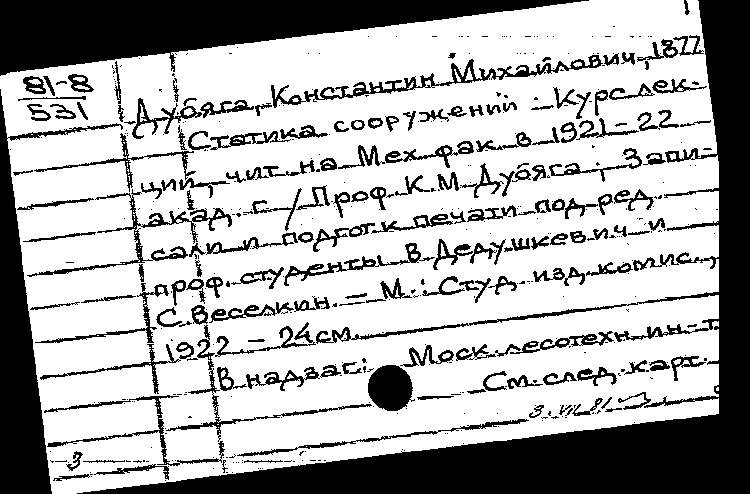 81-8
531
Дубяга, Константин Михайлович, 1877
Статика сооружений: Курс лек-
ций, чит. на Мех. фак. в 1921-22
акад. г. / Проф. К. М. Дубяга; Запи-
сали и подгот. к печати под ред.
проф. студенты В. Дедушкевич и
С. Веселкин. – М.: Студ. изд. комис.,
1922. – 24 см.
В надзаг.: Моск. лесотехн. ин-т.
См. след. карт.
3.VII.81
3